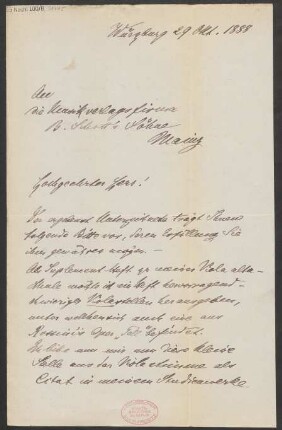 Würzburg 29 Okt. 1888
An
die Musikverlagsfirma
B. Schott's Söhne
Mainz
Hochgeehrter Herr!
Der ergebenst Unterzeichnete trägt Ihnen
folgende Bitte vor, deren Erfüllung Sie
ihm gewähren mögen. –
Als Suplement-Heft zu meiner Viola alta-
Schule möchte ich ein Heft hervorragend-
schwieriger Violastellen herausgeben,
unter welchen sich auch eine aus
Oper befindet.
Es nur um diese kleine
Stelle aus der Violastimme als
Citat in meinem Studienwerke.